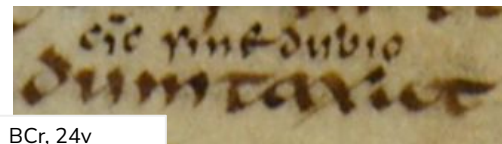 sine dubio
dumtaxat
BCr, 24v